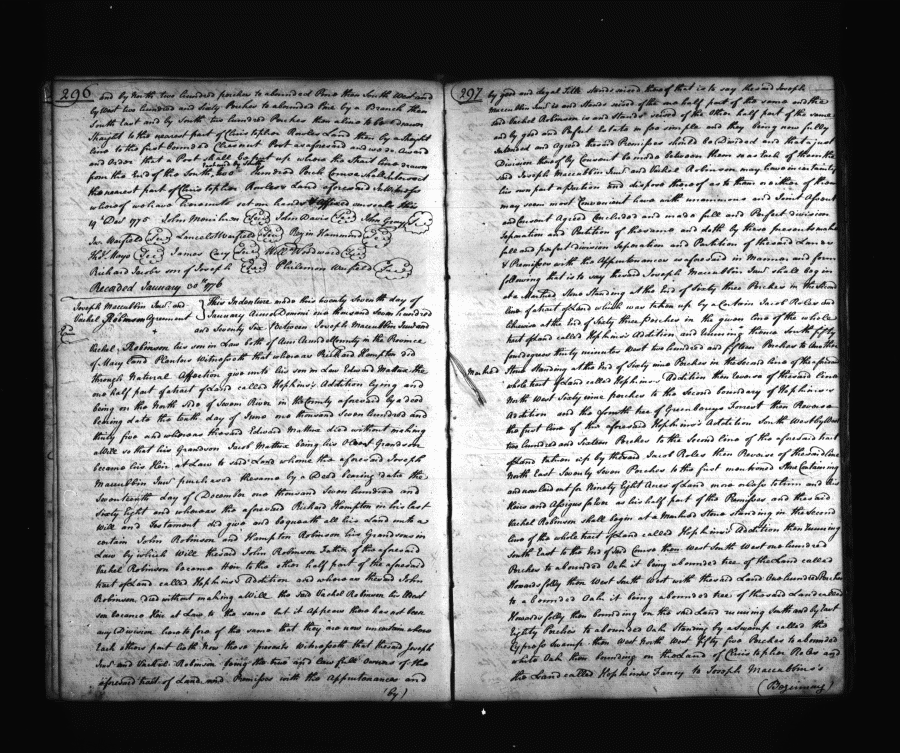 296
and by North two hundred perches to a bounded Pine then South West and
by West two hundred and Sixty Perches to a bounded Pine by a Branch then
South East and by South two hundred Perches then aline to be drawn
Straight to the nearest part of Christopher Rowles Land then by a Straight
line to the first bounded Chesnut Post as aforesaid and we do Award
and Order that a Post shall be put up where the Strait line drawn
from the End of the South two hundred Perch Course shall intersect
the nearest part of Christopher Rowles Land aforesaid In Witness
whereof we have hereunto set our hands & affixed our seals this
4th Decr 1775 John Merriken (Seal) John Davis (Seal) John Gray (Seal)
Jno Warfield (Seal) Lancelot Warfield (Seal) Rezin Hammond (Seal)
Thos Mayo (Seal) James Cary (Seal) Will Woodward (Seal)
Richard Jacobs son of Joseph (Seal) Philemon Warfield (Seal)
Recorded January 3d 1776
Joseph Maccubbin Junr and
Vachel Robinson Agreement
This Indenture made this twenty Seventh day of
January Anno Domini one thousand Seven hundred
and Seventy Six Between Joseph Maccubbin Junr and
Vachel Robinson his son in Law both of Ann Arundel County in the Province
of Maryland Planters Witnesseth that whereas Richard Hampton did
through Natural Affection give unto his son in Law Edward Mattux the
one half part of a tract of Land called Hopkins's Addition lying and
being on the North Side of Severn River in the County aforesaid by a deed
bearing date the tenth day of June one thousand Seven hundred and
thirty five and whereas the said Edward Mattux died without making
a Will so that his Grandson Jacob Mattux being his Oldest Grandson
became his Heir at Law to said Land whome the aforesaid Joseph
Maccubbin Junr purchased the same by a Deed bearing date the
Seventeenth day of December one thousand Seven hundred and
Sixty Eight and whereas the aforesaid Richard Hampton in his last
Will and Testament did give and bequeath all his Land unto a
certain John Robinson and Hampton Robinson his Grandsons in
Law by which Will the said John Robinson Father of the aforesaid
Vachel Robinson became Heir to the other half part of the aforesaid
tract of Land called Hopkins's Addition and whereas the said John
Robinson died without making a Will the said Vachel Robinson his Eldest
son became Heir at Law to the same but it appears there has not been
any Division heretofore of the same that they are now uncertain where
Each others part lieth Now these presents Witnesseth that the said Joseph
Junr and Vachel Robinson being the true and lawfull Owners of the
aforesaid tract of Land and Premisses with the Appurtenances and
(by)
297
by good and legal Title Stands seized thereof that is to say the said Joseph
Maccubbin Junr is and Stands seized of the one half part of the same and the
said Vachel Robinson is and Stands seized of the Other half part of the same
and by good and Perfect Estate in fee simple and they being now fully
informed and Agreed the said Premisses should be Divided and that a just
Division thereof by Consent be made between them so as Each of them the
said Joseph Maccubbin Junr and Vachel Robinson may have in certainty
his own part a portion and dispose thereof as to them or either of them
may seem most Convenient have with unanimous and Joint Assent
and consent Agreed Concluded and made a full and Perfect division
Separation and Partition of the same and doth by these presents make
full and perfect division Seperation and Partition of the said Lands
& Premisses with the Appurtenances as aforesaid in Manner and form
following that is to say the said Joseph Maccubbin Junr shall begin
at a Marked Stone Standing at the End of Sixty three Perches in the Second
line of a tract of Land which was taken up by a Certain Jacob Roles and
likewise at the End of Sixty three perches in the given line of the whole
tract of Land called Hopkins's Addition and running thence South fifty
four degrees thirty minutes West two hundred and fifteen Perches to another
Marked Stone Standing at the End of Sixty nine Perches in the Second line of the aforesaid
whole tract of Land called Hopkins's Addition then reverse of the said line
North West Sixty nine perches to the Second boundary of Hopkins's
Addition and the fourth tree of Greenburys Forrest then Reverse
the first line of the aforesaid Hopkins's Addition South West by West
two hundred and Sixteen Perches to the Second line of the aforesaid tract
of Land taken up by the said Jacob Roles then Reverse of the said line
North East Seventy Seven Perches to the first mentioned Stone Containing
and now laid out for Ninety Eight Acres of Land more or less to him and his
Heirs and Assigns forever as his half part of the Premisses and the said
Vachel Robinson shall begin at a Marked Stone standing in the Second
line of the whole tract of Land called Hopkins's Addition then running
South East to the End of said Course then West South West one hundred
Perches to a bounded Oak it being a bounded tree of the Land called
Howards folly then West South West with the said Land One hundred Perches
to a bounded Oak it being a bounded tree of the said Land called
Howards folly then bounding on the said Land running South and by East
Eighty Perches to a bounded Oak Standing by a Swamp called the
Cypress Swamp then West North West Fifty five Perches to a bounded
white Oak then bounding on the Land of Christopher Roles and
the Land called Hopkins's Fancy to Joseph Maccubbin's
(Beginning)